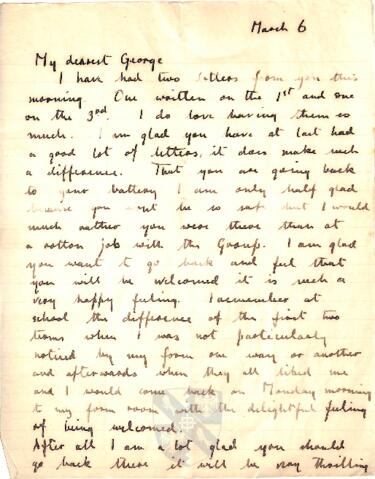 March 6
My dearest George
I have had two letters from you this
morning. One written on the 1st and one
on the 3rd. I do love having them so
much. I am glad you have at last had
a good lot of letters, it does make such
a difference. That you are going back
to your battery I am only half glad
because you wont be so safe but I would
much rather you were there than at
a rotten job with the Group. I am glad
you want to go back and feel that
you will be welcomed it is such a
very happy feeling. I remember at
school the difference of the first two
terms when I was not particularly
noticed by my form one way or another
and afterwards when they all liked me
and I would come back on Monday morning
to my form room with the delightful feeling
of being welcomed.
After all I am a lot glad you should
go back there it will be very thrilling